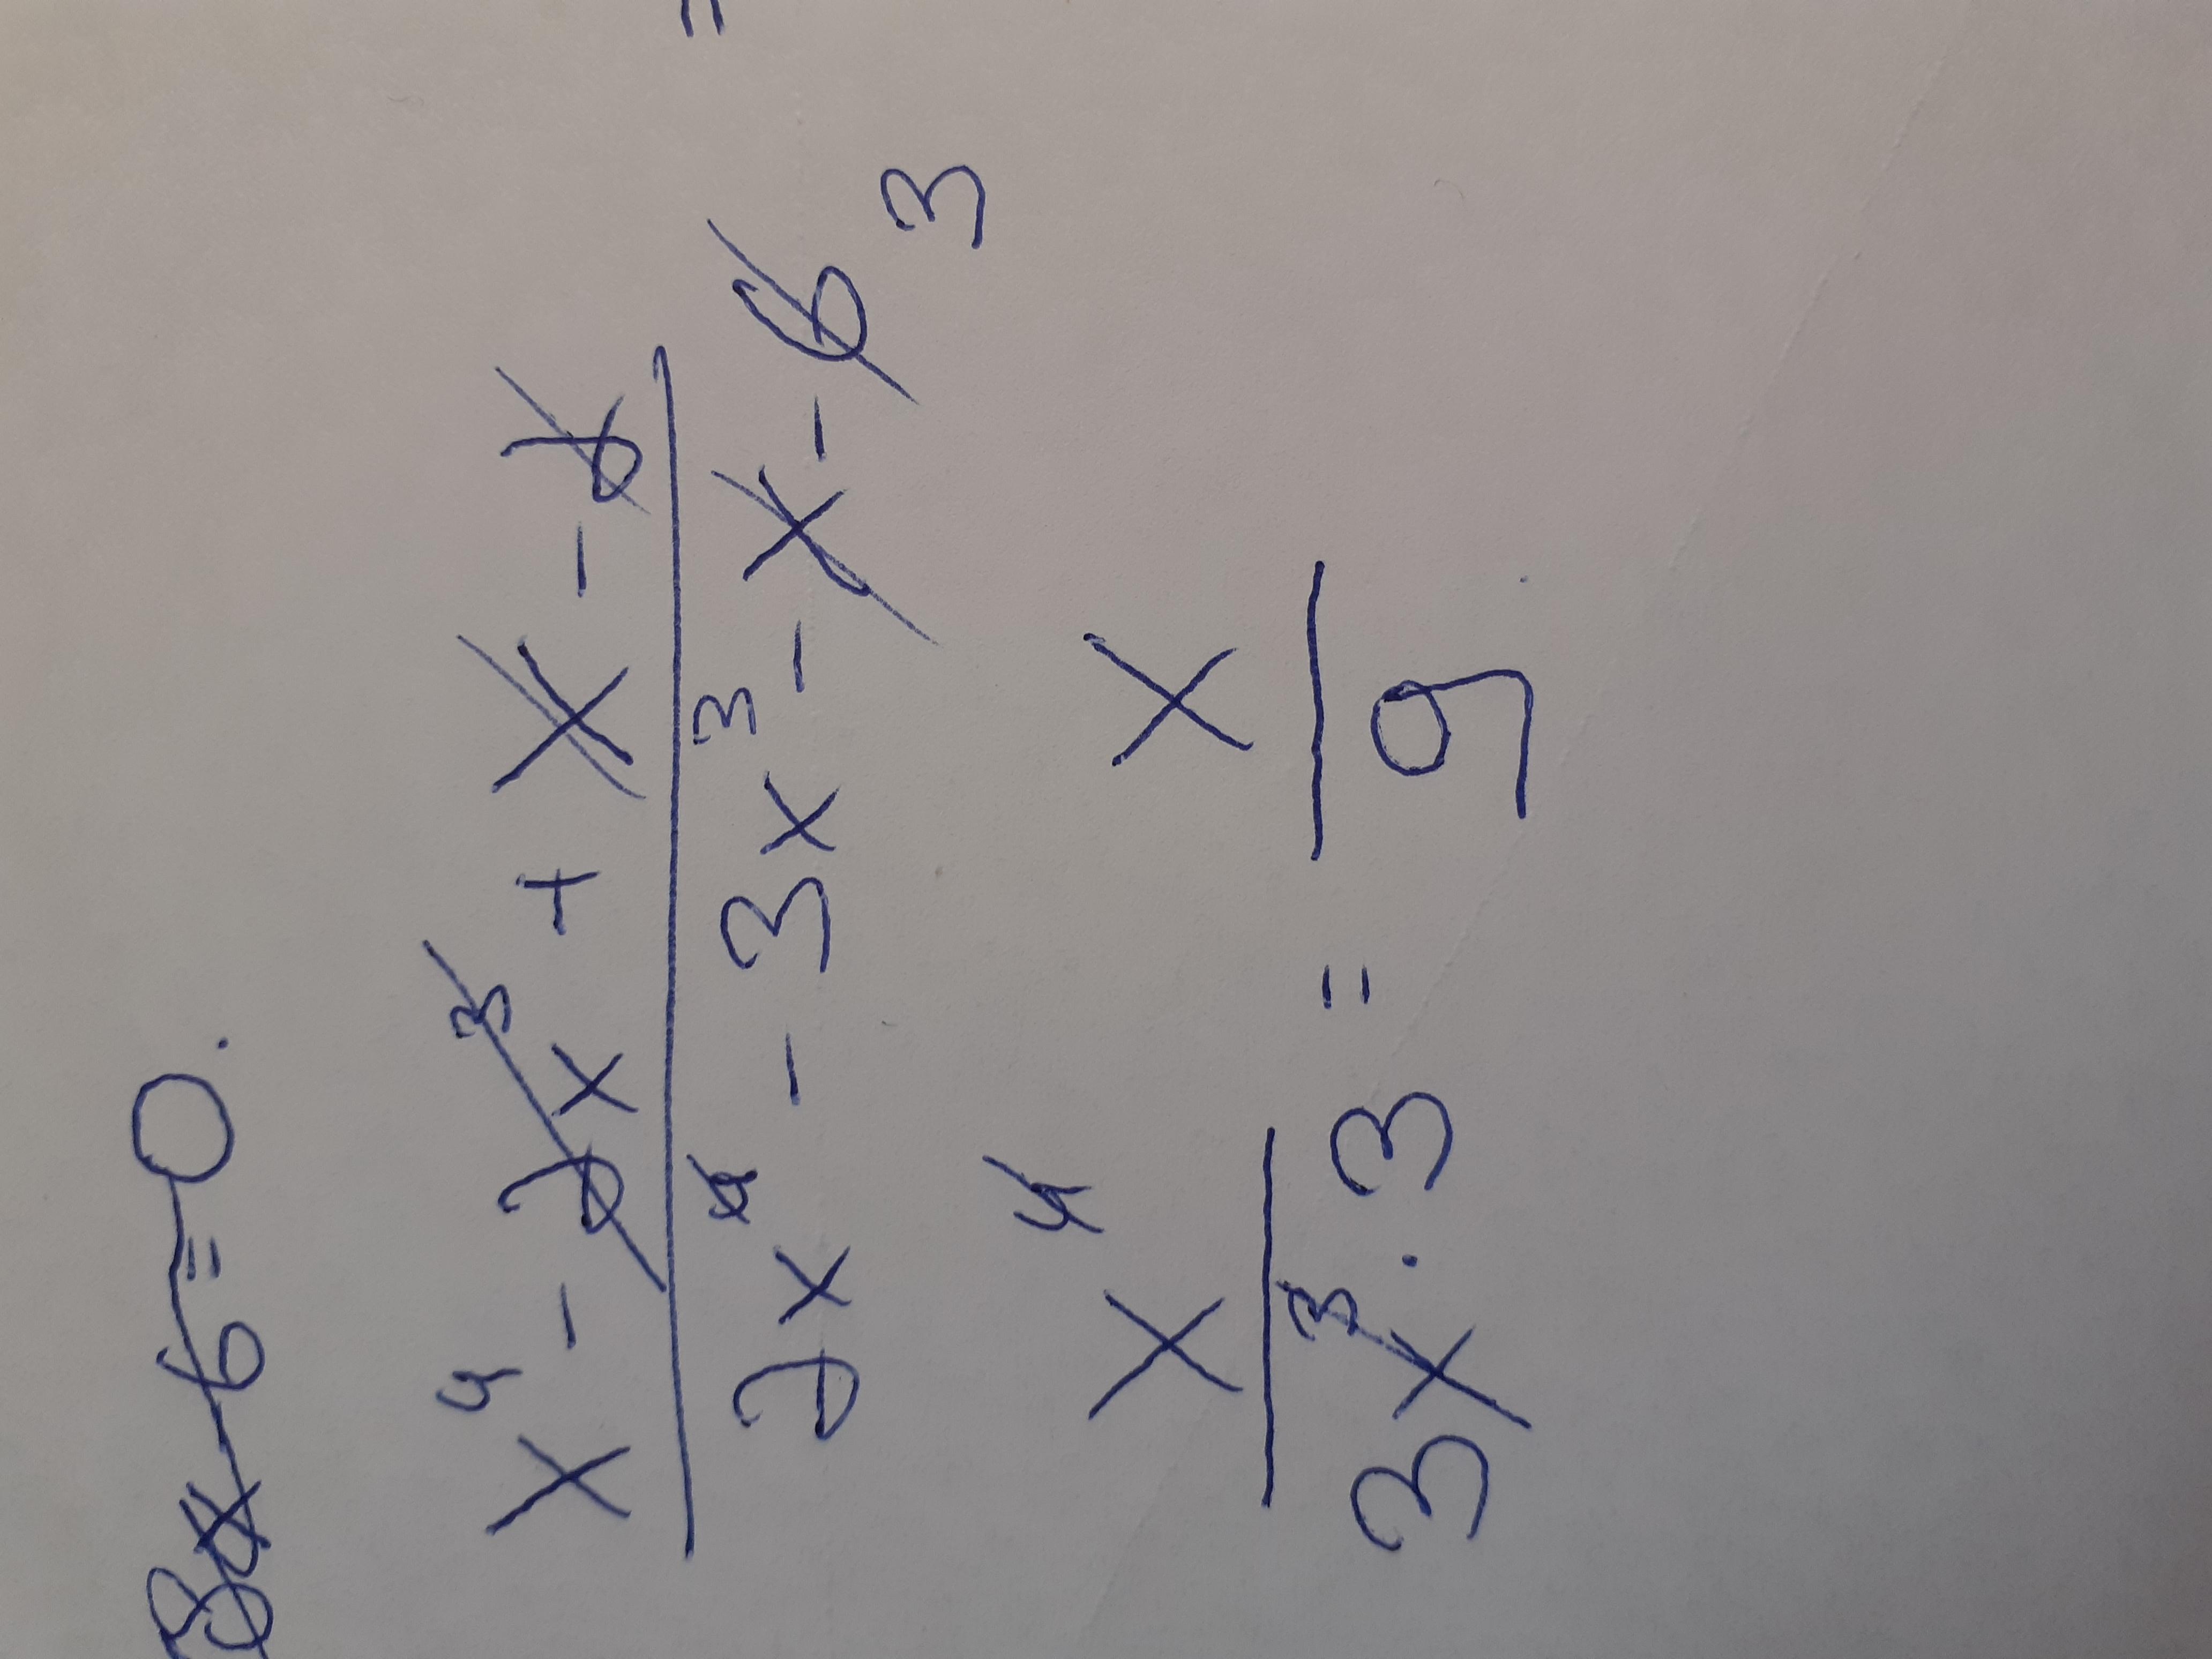 6 = 0.
x⁴ - 2x³ + x - 2
2x⁴ - 3x³ - x - 6 3
x⁴ x
3x³ · 3 = 9